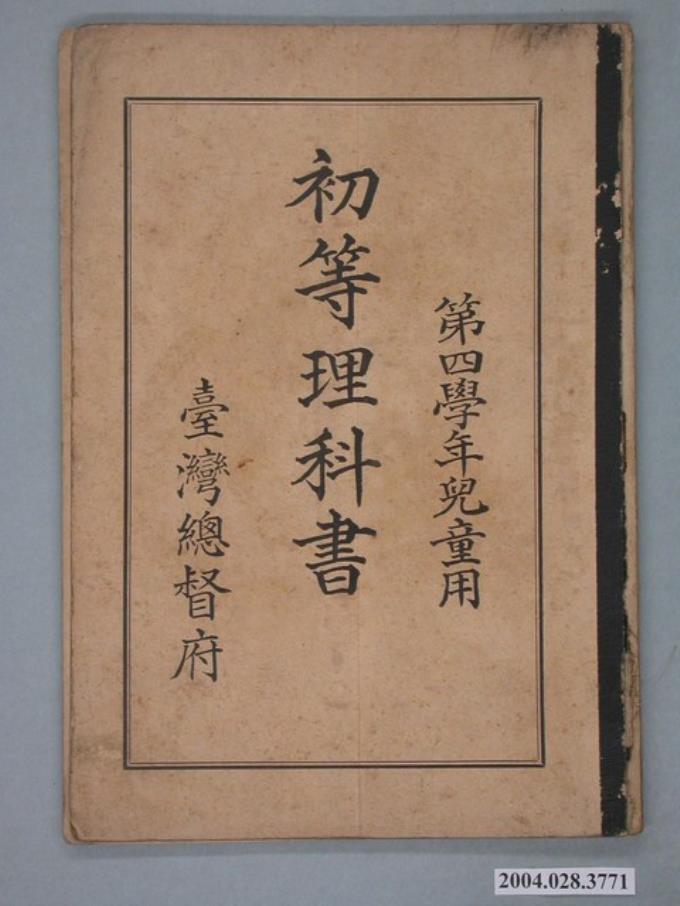 第四學年兒童用
初等理科書
臺灣總督府
2004.028.3771